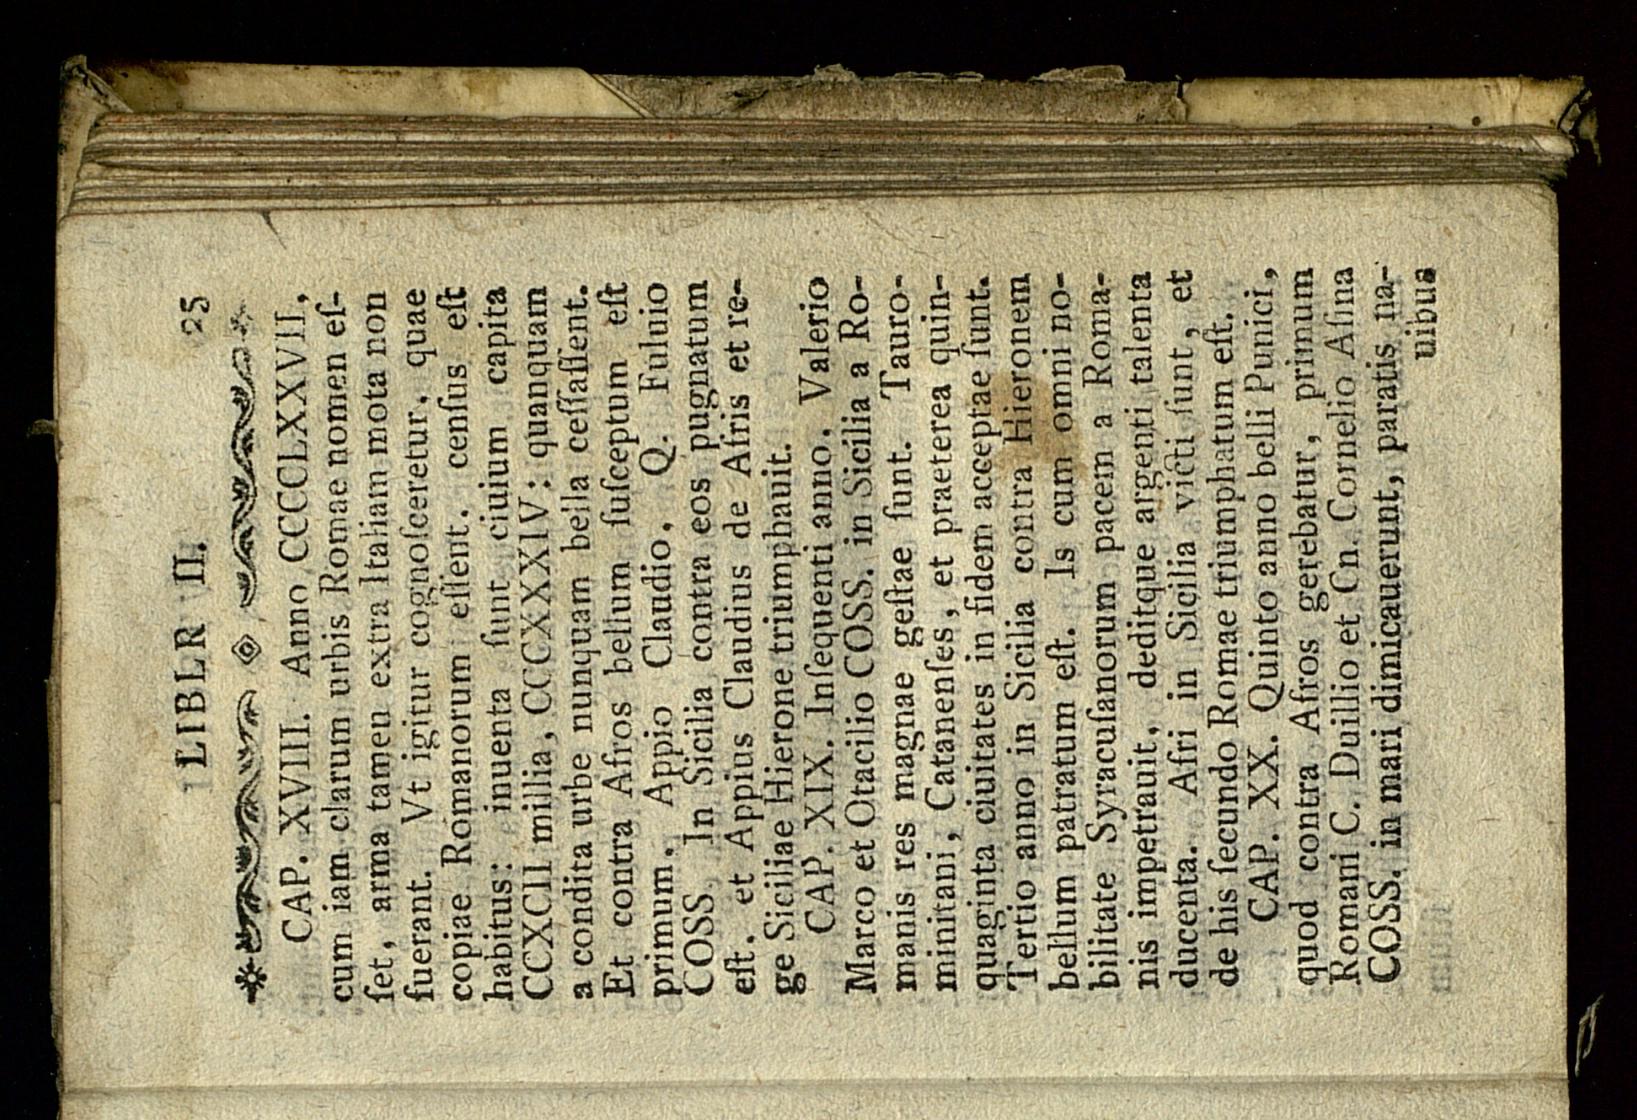 LIBLR II. 25
CAP. XVIII. Anno CCCCLXXVII,
cum iam clarum urbis Romae nomen eſ-
ſet, arma tamen extra Italiam mota non
fuerant. Vt igitur cognoſceretur, quae
copiae Romanorum eſſent, cenſus eſt
habitus: inuenta ſunt ciuium capita
CCXCII millia, CCCXXXIV: quanquam
a condita urbe nunquam bella ceſſaſſent.
Et contra Afros bellum ſuſceptum eſt
primum, Appio Claudio, Q. Fuluio
COSS. In Sicilia contra eos pugnatum
eſt. et Appius Claudius de Afris et re-
ge Siciliae Hierone triumphauit.
CAP. XIX. Inſequenti anno, Valerio
Marco et Otacilio COSS. in Sicilia a Ro-
manis res magnae geſtae ſunt. Tauro-
minitani, Catanenſes, et praeterea quin-
quaginta ciuitates in fidem acceptae ſunt.
Tertio anno in Sicilia contra Hieronem
bellum patratum eſt. Is cum omni no-
bilitate Syracuſanorum pacem a Roma-
nis impetrauit, deditque argenti talenta
ducenta. Afri in Sicilia victi ſunt, et
de his ſecundo Romae triumphatum eſt.
CAP. XX. Quinto anno belli Punici,
quod contra Afros gerebatur, primum
Romani C. Duillio et Cn. Cornelio Aſina
COSS. in mari dimicauerunt, paratis na-
uibus